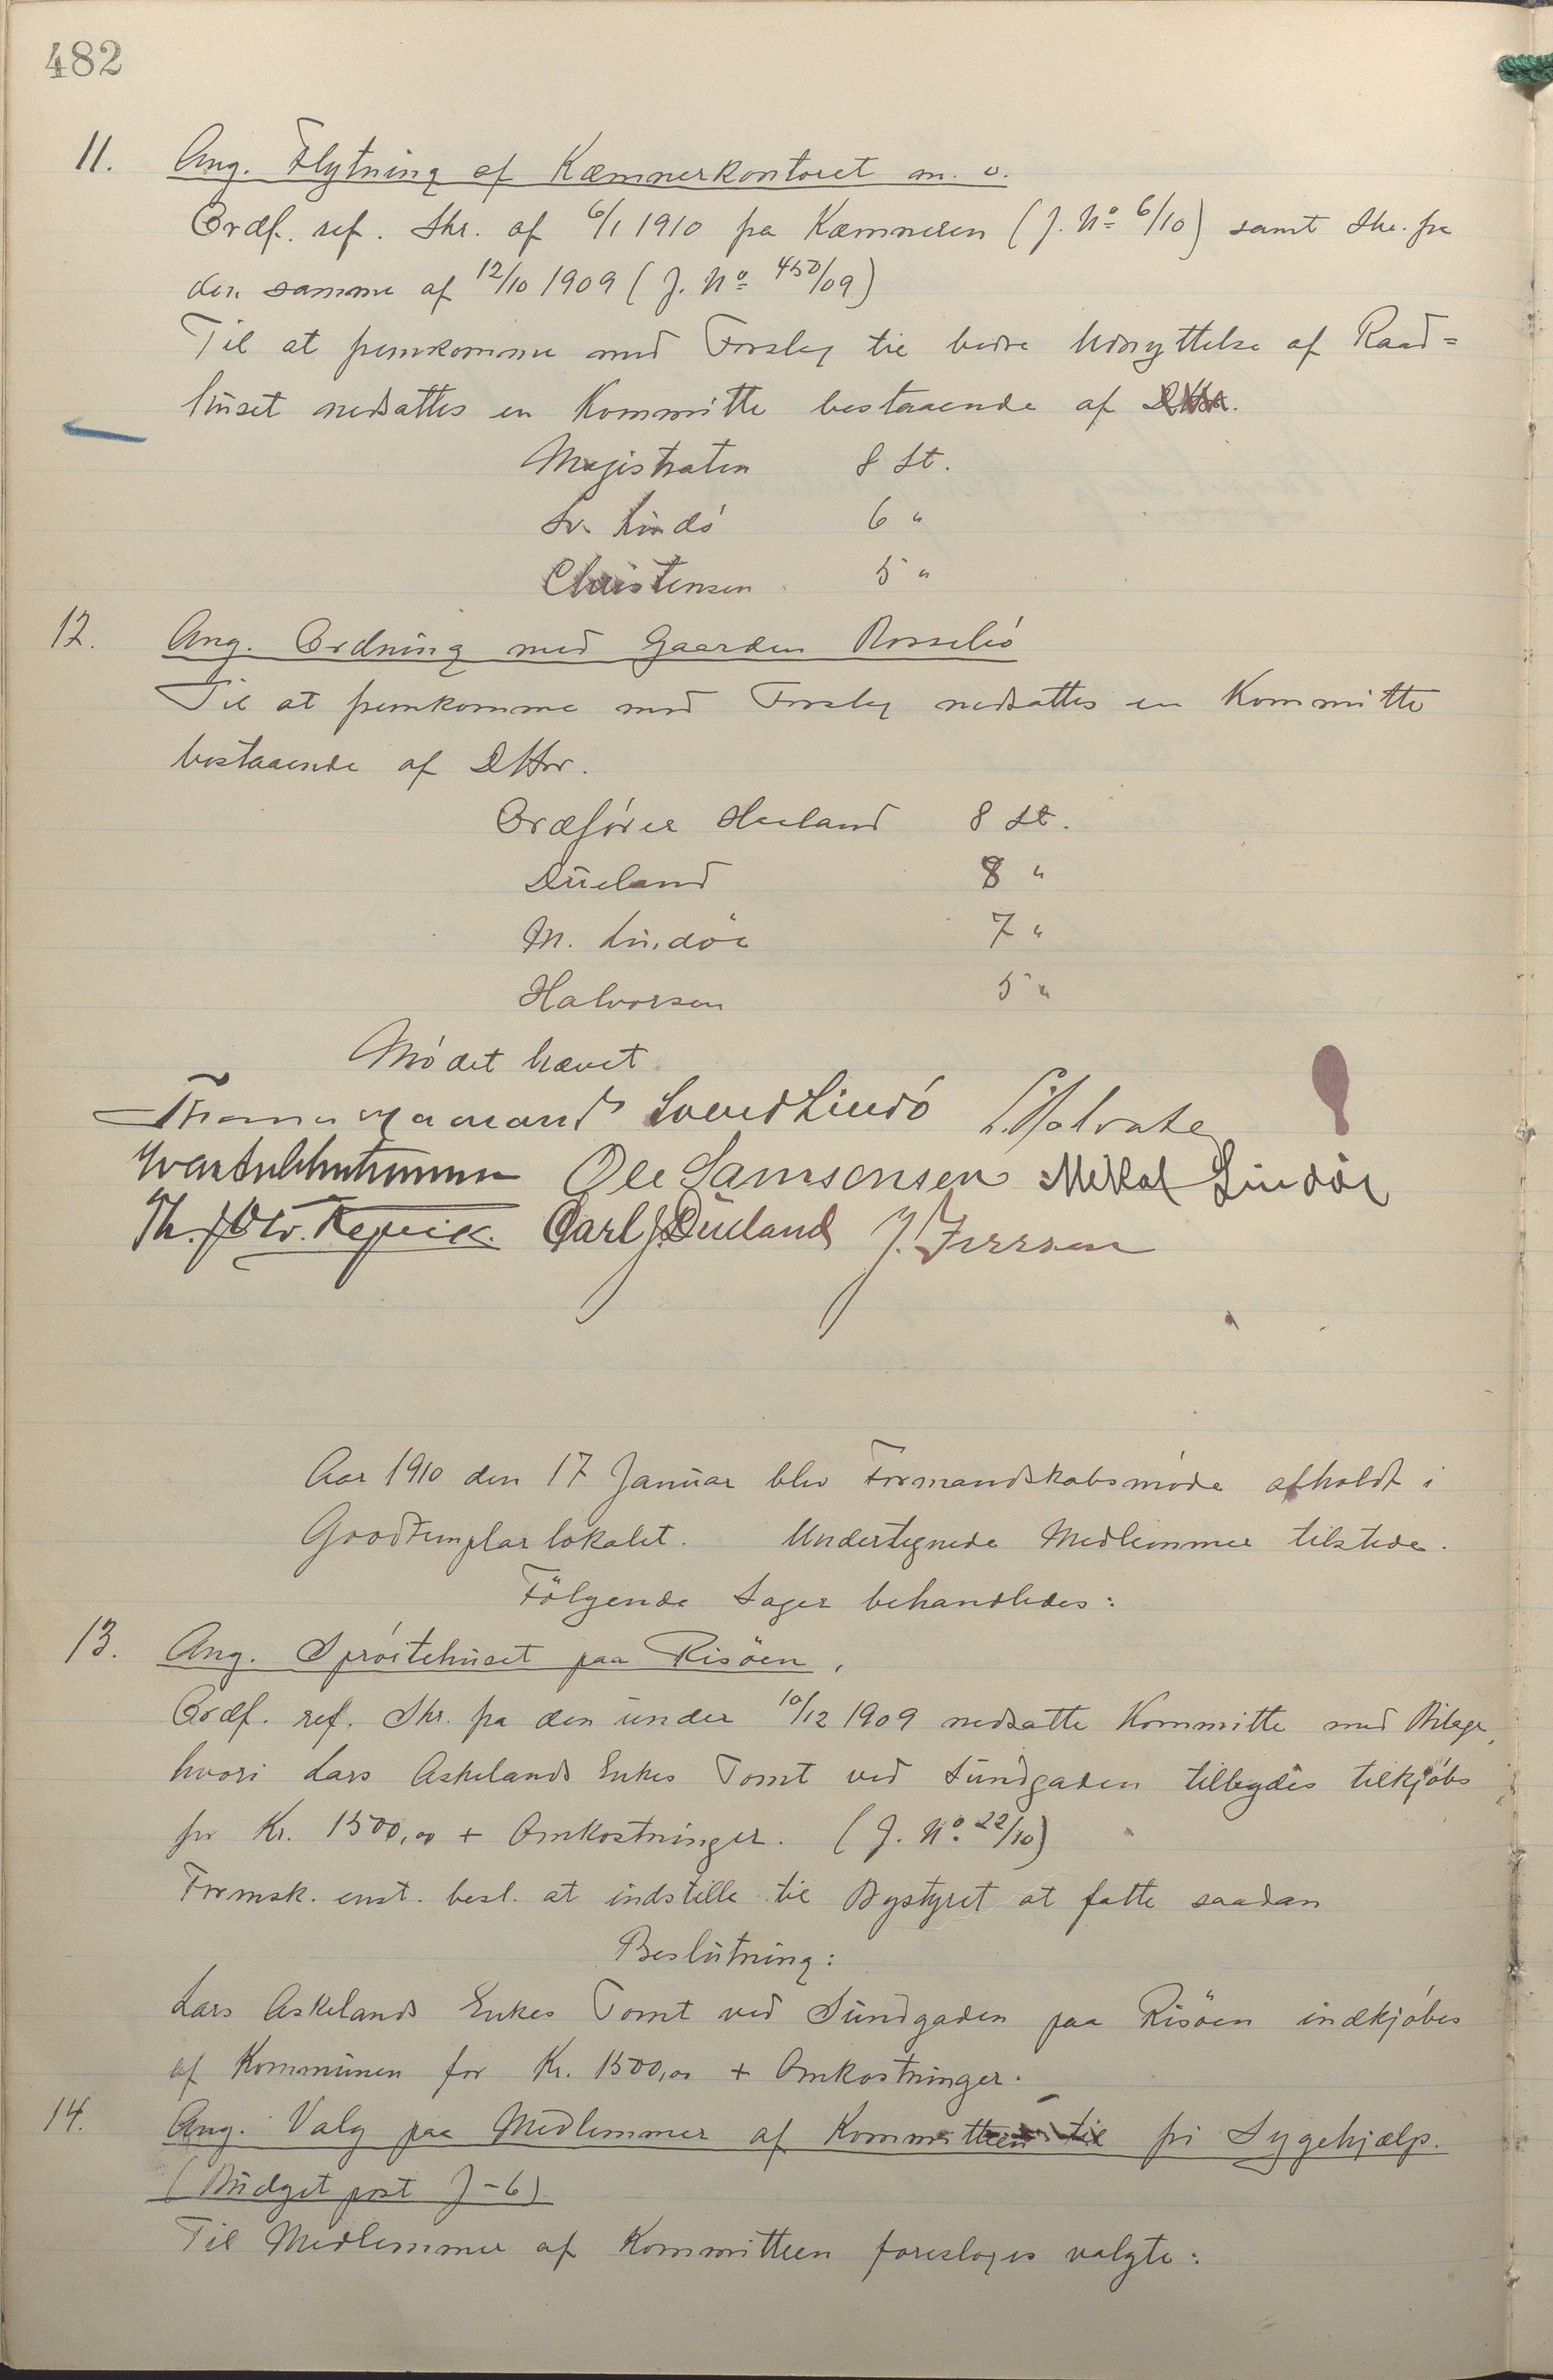 482
11. Ang. Flytning af Kæmnerkontoret m. v.
Ordf. ref. Skr. af 6/1 1910 fra Kæmneren (J. No 6/10) samt Skr. fra
den samme af 12/10 1909 (J. No 450/09)
Til at fremkomme med Forslag til bedre Udnyttelse af Raad=
huset nedsattes en Kommitte bestaaende af
Magistraten 8 St.
Sv. Lindö 6 "
Christensen 5 "
12. Ang. Ordning med Gaarden Rossebö
Til at fremkomme med Forslag nedsattes en Kommitte
bestaaende af DHrr.
Ordfører Haaland 8 St.
Düeland 8 "
M. Lindöe 7 "
Halvorsen 5 "
Mödet hævet.
Svend Lindö
Ole Samsonsen Mikal Lindöe
Carl J. Düeland J. Iversen
Aar 1910 den 17 Januar blev Formandskabsmöde afholdt i
Goodtemplarlokalet. Undertegnede Medlemmer tilstede.
Fölgende Sager behandledes:
13. Ang. Spröitehuset paa Risöen.
Ordf. ref. Skr. fra den under 10/12 1909 nedsatte Kommitte med Bilage,
hvori Lars Askelands Enkes Tomt ved Sundgaden tilbydes tilkjöbs
for Kr. 1500,00 + Omkostninger. (J. No. 22/10)
Formsk. enst. besl. at indstille til Bystyret at fatte saadan
Beslutning:
Lars Askelands Enkes Tomt ved Sundgaden paa Risöen indkjöbes
af Kommunen for Kr. 1500,00 + Omkostninger.
14. Ang. Valg paa Medlemmer af Kommitteen til fri Sygehjælp.
(Budget post J-6)
Til Medlemmer af Kommitteen foresloges valgte: